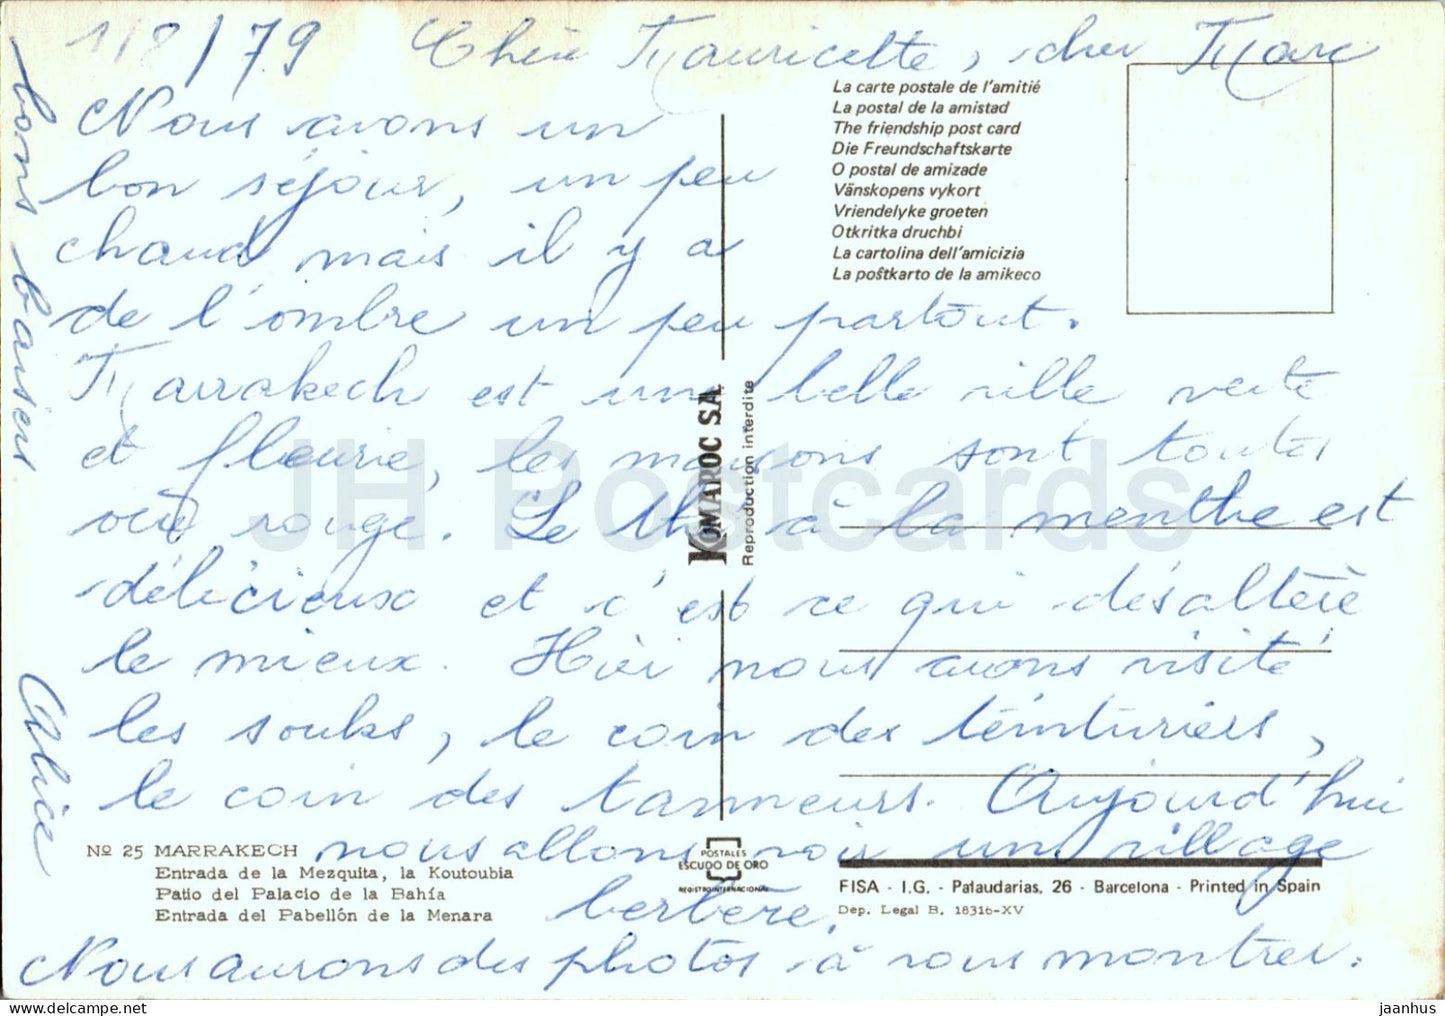 1/8/79 Chère Mauricette, cher Marc
Nous avons un
bon séjour, un peu
chaud mais il y a
de l'ombre un peu partout.
Marrakech est une belle ville verte
et fleurie, les maisons sont toutes
rouge. Le thé à la menthe est
délicieux et c'est ce qui désaltère
le mieux. Hier nous avons visité
les souks, le coin des teinturiers,
le coin des tanneurs. Aujourd'hui
nous allons voir un village
berbère.
Nous aurons des photos à vous montrer.
bons baisers
Alice
La carte postale de l'amitié
La postal de la amistad
The friendship post card
Die Freundschaftskarte
O postal de amizade
Vänskopens vykort
Vriendelyke groeten
Otkritka druchbi
La cartolina dell'amicizia
La poŝtkarto de la amikeco
KOMAROC S.A.
Reproduction interdite
No 25 MARRAKECH
Entrada de la Mezquita, la Koutoubia
Patio del Palacio de la Bahía
Entrada del Pabellón de la Menara
POSTALES
ESCUDO DE ORO
REGISTRO INTERNACIONAL
FISA - I.G. - Palaudarias, 26 - Barcelona - Printed in Spain
Dep. Legal B. 18316-XV
JH Postcards
jaanhus